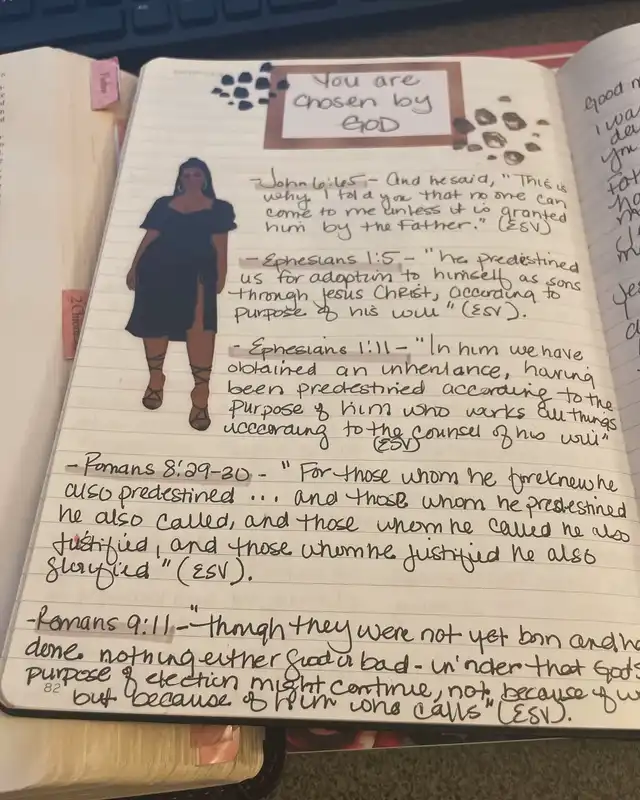 You are
chosen by
GOD
-John 6:65- And he said, "This is
why I told you that no one can
come to me unless it is granted
him by the Father." (ESV)
- Ephesians 1:5 - "he predestined
us for adoption to himself as sons
through Jesus Christ, according to
purpose of his will" (ESV).
- Ephesians 1:11 - "In him we have
obtained an inheritance, having
been predestined according to the
purpose of him who works all things
according to the counsel of his will"
(ESV)
- Romans 8:29-30 - "For those whom he foreknew he
also predestined ... and those whom he predestined
he also called, and those whom he called he also
justified, and those whom he justified he also
glorified" (ESV).
-Romans 9:11-"though they were not yet born and ha
done nothing either good or bad - in order that God's
purpose of election might continue, not because of w
but because of him who calls" (ESV).
82
2 Chron
Good m
I wa
de
you
Fat
ha
no
m
Yes